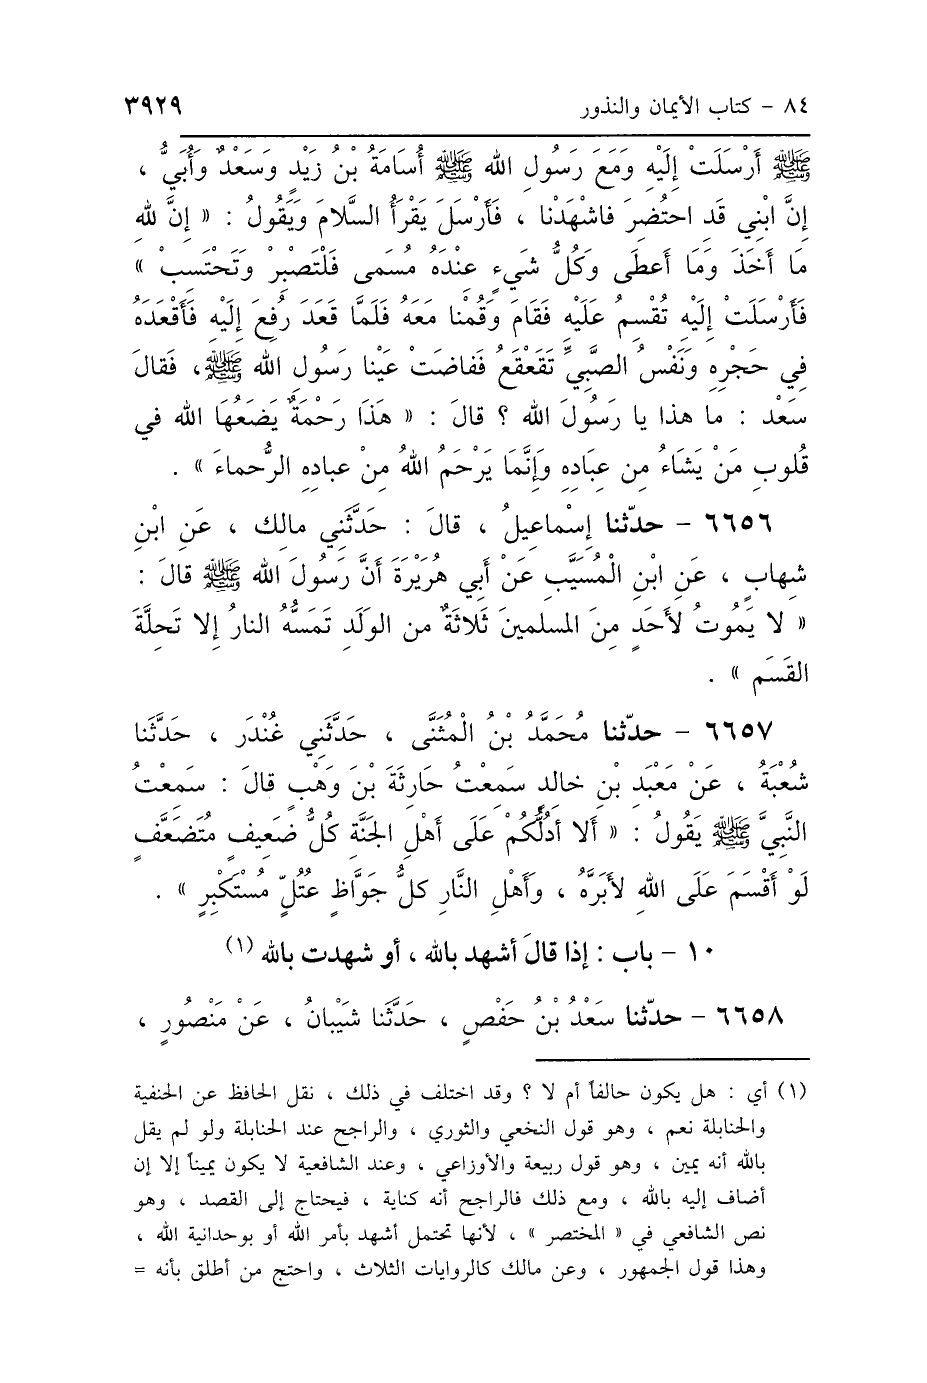 ٨٤ - كتاب الأيمان والنذور ٣٩٢٩
ﷺ أَرْسَلَتْ إِلَيْهِ وَمَعَ رَسُولِ الله ﷺ أُسَامَةُ بْنُ زَيْدٍ وَسَعَدٌ وأُبَيٌّ ،
إِنَّ ابْنِي قَدِ احتُضِرَ فاشْهَدْنا ، فَأَرْسَلَ يَقْرَأُ السَّلامَ وَيَقُولُ : « إِنَّ لله
مَا أَخَذَ وَمَا أَعطَى وَكُلُّ شَيءٍ عِنْدَهُ مُسَمى فَلْتَصبِرْ وَتَحْتَسِبْ »
فَأَرْسَلَتْ إِلَيْهِ تُقْسِمُ عَلَيْهِ فَقَامَ وَقُمْنا مَعَهُ فَلَمَّا قَعَدَ رُفِعَ إِلَيْهِ فَأَقْعَدَهُ
فِي حَجْرِهِ وَنَفْسُ الصَّبِيِّ تَقَعْقَعُ فَفاضَتْ عَيْنا رَسُولِ الله ﷺ، فَقالَ
سَعْد : ما هذا يا رَسُولَ الله ؟ قالَ : « هَذَا رَحْمَةٌ يَضَعُهَا الله في
قُلوبِ مَنْ يَشَاءُ مِن عِبَادِهِ وَإِنَّمَا يَرْحَمُ اللهُ مِنْ عبادِهِ الرُّحماءَ » .
٦٦٥٦ - حدّثنا إِسْماعيلُ ، قالَ : حَدَّثَنِي مالك ، عَنِ ابْنِ
شِهابٍ ، عَنِ ابْنِ الْمُسَيَّبِ عَنْ أَبِي هُرَيْرَةَ أَنَّ رَسُولَ الله ﷺ قالَ :
« لا يَمُوتُ لأَحَدٍ مِنَ المسلمينَ ثَلاثَةٌ من الوَلَدِ تَمَسُّهُ النارُ إِلا تَحِلَّةَ
القَسَمِ » .
٦٦٥٧ - حدّثنا مُحَمَّدُ بْنُ الْمُثَنَّى ، حَدَّثَنِي غُنْدَر ، حَدَّثَنا
شُعْبَةُ ، عَنْ مَعْبَدِ بْنِ خالدٍ سَمِعْتُ حَارِثَةَ بْنَ وَهْبٍ قالَ : سَمِعْتُ
النَّبِيَّ ﷺ يَقُولُ : « أَلا أَدُلُّكُمْ عَلَى أَهْلِ الجَنَّةِ كُلُّ ضَعيفٍ مُتَضَعَّفٍ
لَوْ أَقْسَمَ عَلَى اللهِ لأَبَرَّهُ ، وَأَهْلِ النَّارِ كلُّ جَوَّاظٍ عُتُلٍّ مُسْتَكْبِرٍ » .
١٠ - باب : إذا قالَ أشهد بالله ، أو شهدت بالله (١)
٦٦٥٨ - حدّثنا سَعْدُ بْنُ حَفْصٍ ، حَدَّثَنا شَيْبانُ ، عَنْ مَنْصُورٍ ،
(١) أي : هل يكون حالفاً أم لا ؟ وقد اختلف في ذلك ، نقل الحافظ عن الحنفية
والحنابلة نعم ، وهو قول النخعي والثوري ، والراجح عند الحنابلة ولو لم يقل
بالله أنه يمين ، وهو قول ربيعة والأوزاعي ، وعند الشافعية لا يكون يميناً إلا إن
أضاف إليه بالله ، ومع ذلك فالراجح أنه كناية ، فيحتاج إلى القصد ، وهو
نص الشافعي في « المختصر » ، لأنها تحتمل أشهد بأمر الله أو بوحدانية الله ،
وهذا قول الجمهور ، وعن مالك كالروايات الثلاث ، واحتج من أطلق بأنه =